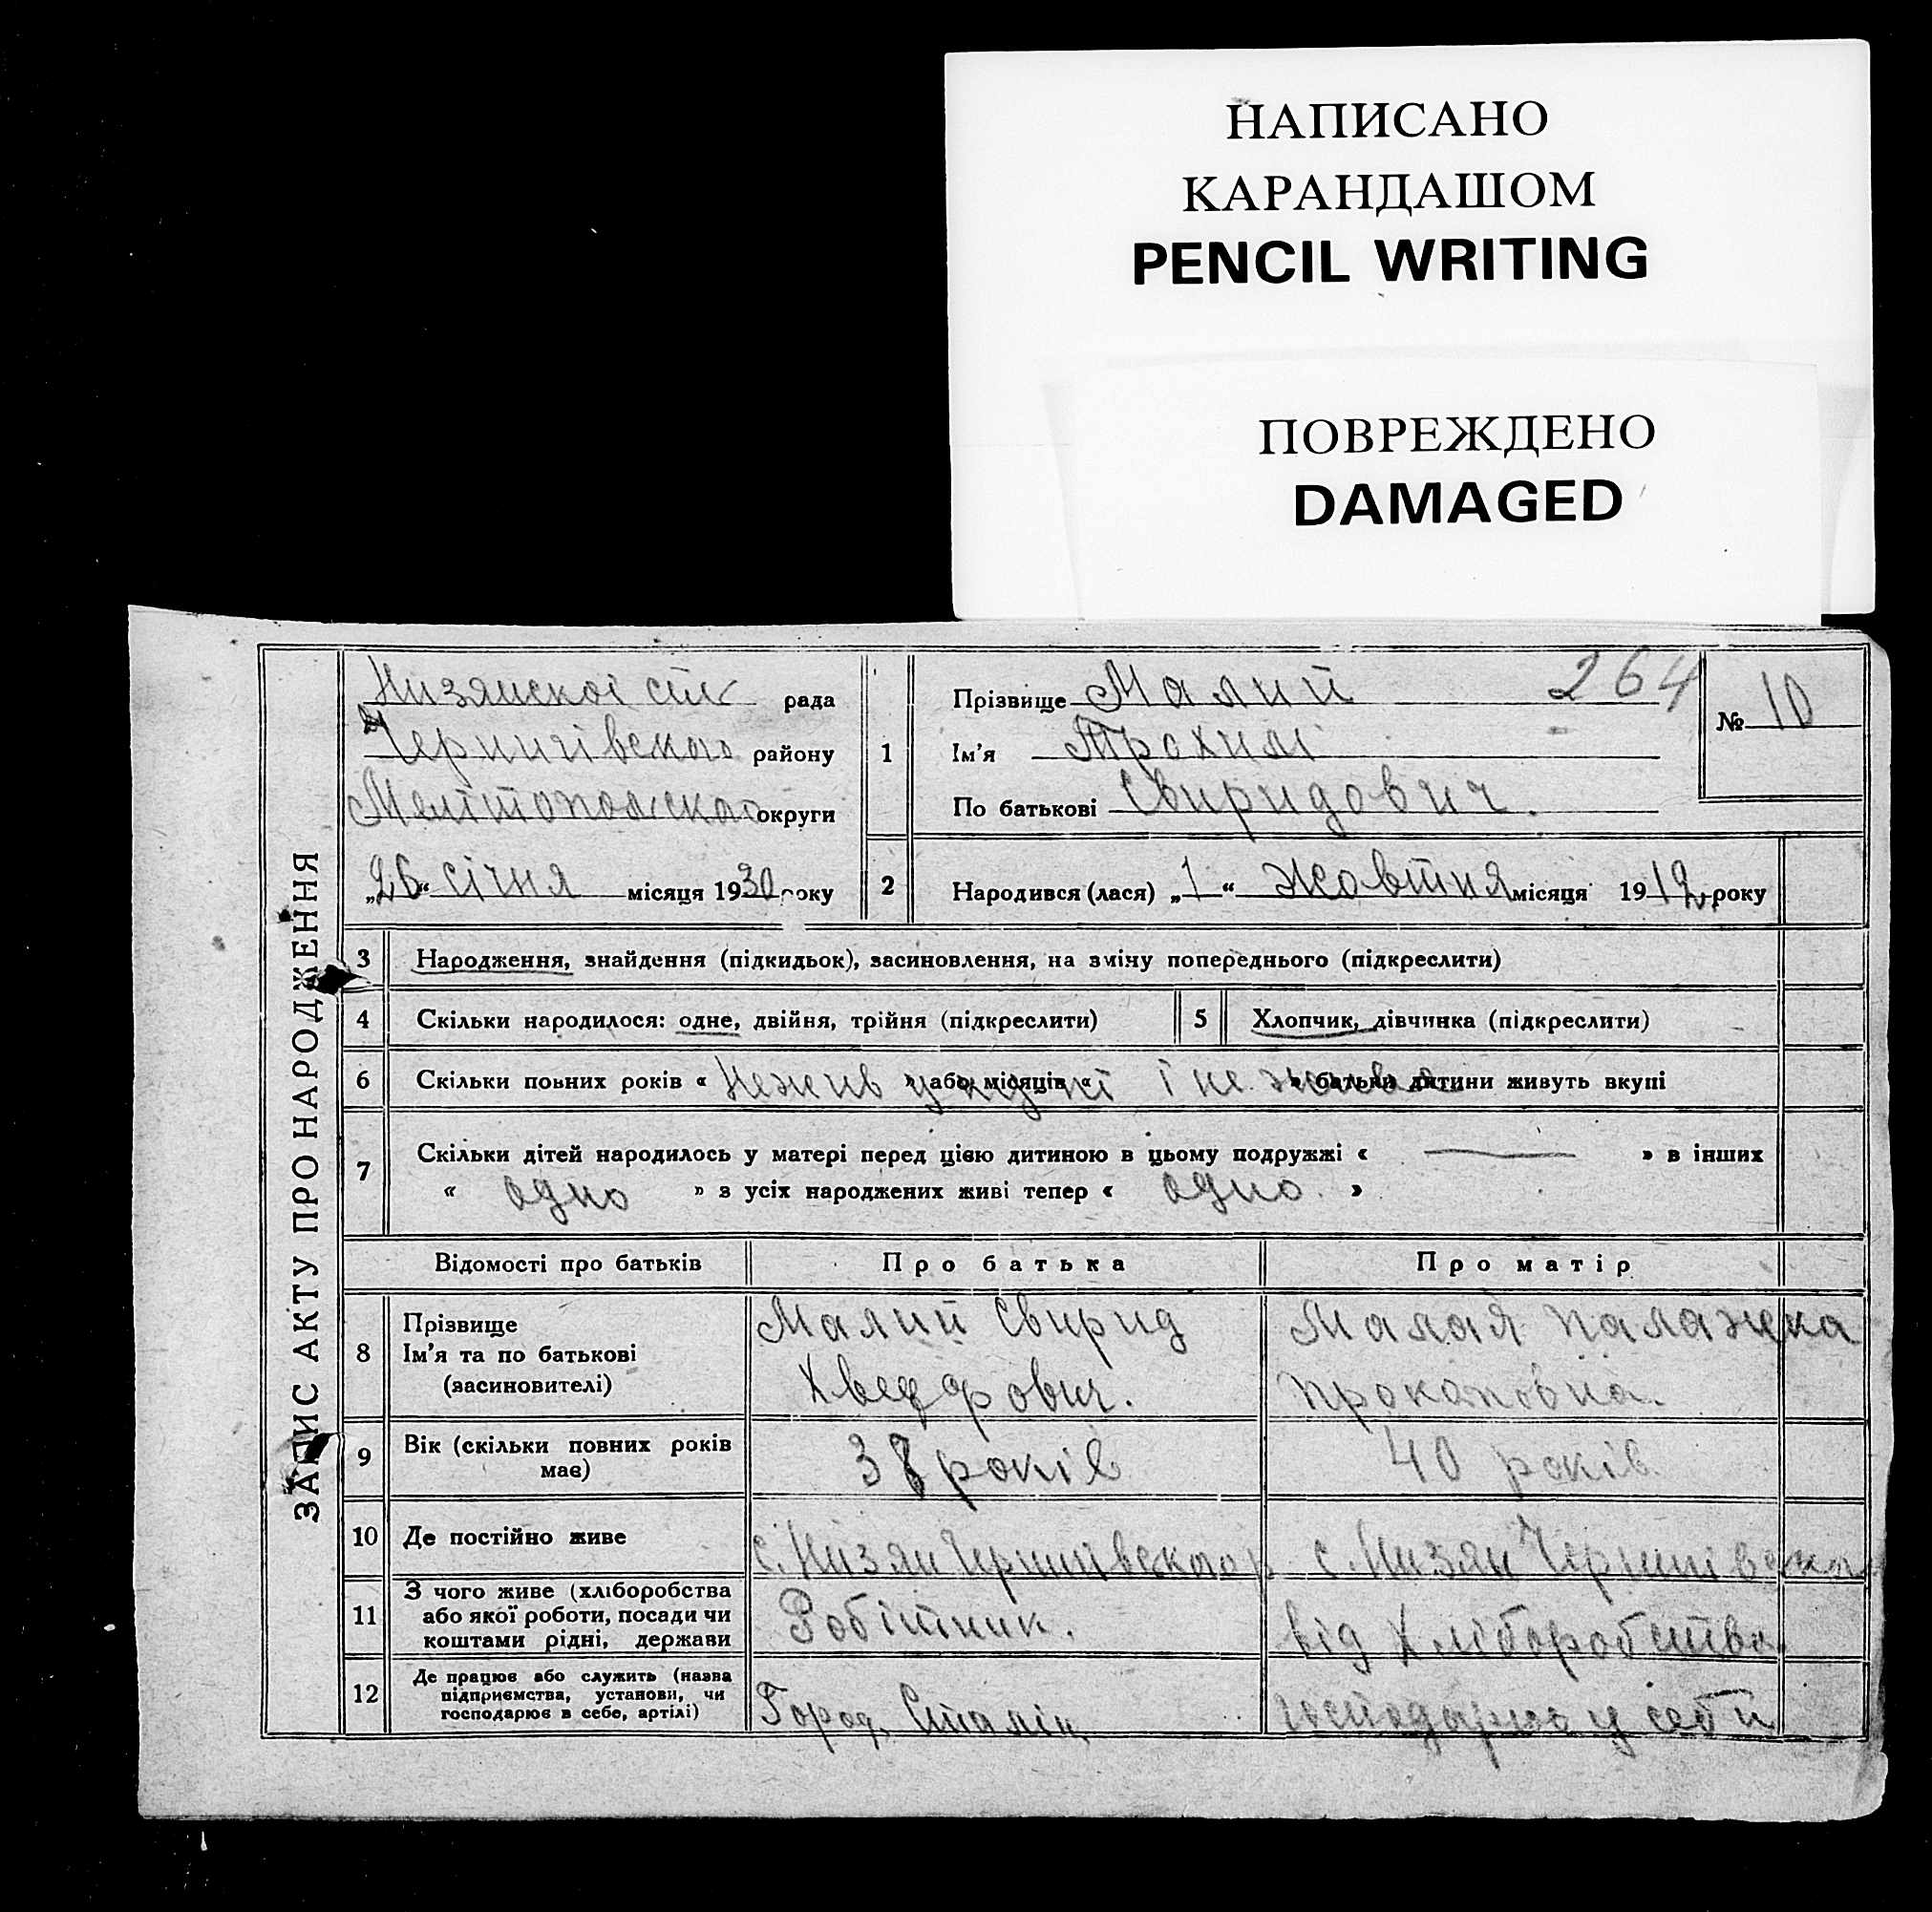 НАПИСАНО
КАРАНДАШОМ
PENCIL WRITING
ПОВРЕЖДЕНО
DAMAGED
ЗАПИС АКТУ ПРО НАРОДЖЕННЯ
Низянскоі сіл рада
Чернигівского району
округи
„26“ січня місяця 1930 року
1
Прізвище Малий 264
Ім'я Трохим
По батькові Свиридович.
№ 10
2 Народився (лася) „1“ Жовтня місяця 1912 року
3 Народження, знайдення (підкидьок), засиновлення, на зміну попереднього (підкреслити)
4 Скільки народилося: одне, двійня, трійня (підкреслити) 5 Хлопчик, дівчинка (підкреслити)
6 Скільки повних років « » або місяців « » батьки дитини живуть вкупі
7 Скільки дітей народилось у матері перед цією дитиною в цьому подружжі « — » в інших
« одно » з усіх народжених живі тепер « одно. »
Відомості про батьків Про батька Про матір
8 Прізвище
Ім'я та по батькові
(засиновителі)
Малий Свирид
Хведорович.
Малая Палажка
Прокоповна.
9 Вік (скільки повних років
має)
років
40 років.
10 Де постійно живе с. Низян с. Низян
11 З чого живе (хліборобства
або якої роботи, посади чи
коштами рідні, держави
Робітник.
від Хліборобства
12 Де працює або служить (назва
підприємства, установи, чи
господарює в себе, артілі)
Город, Сталін
у себи